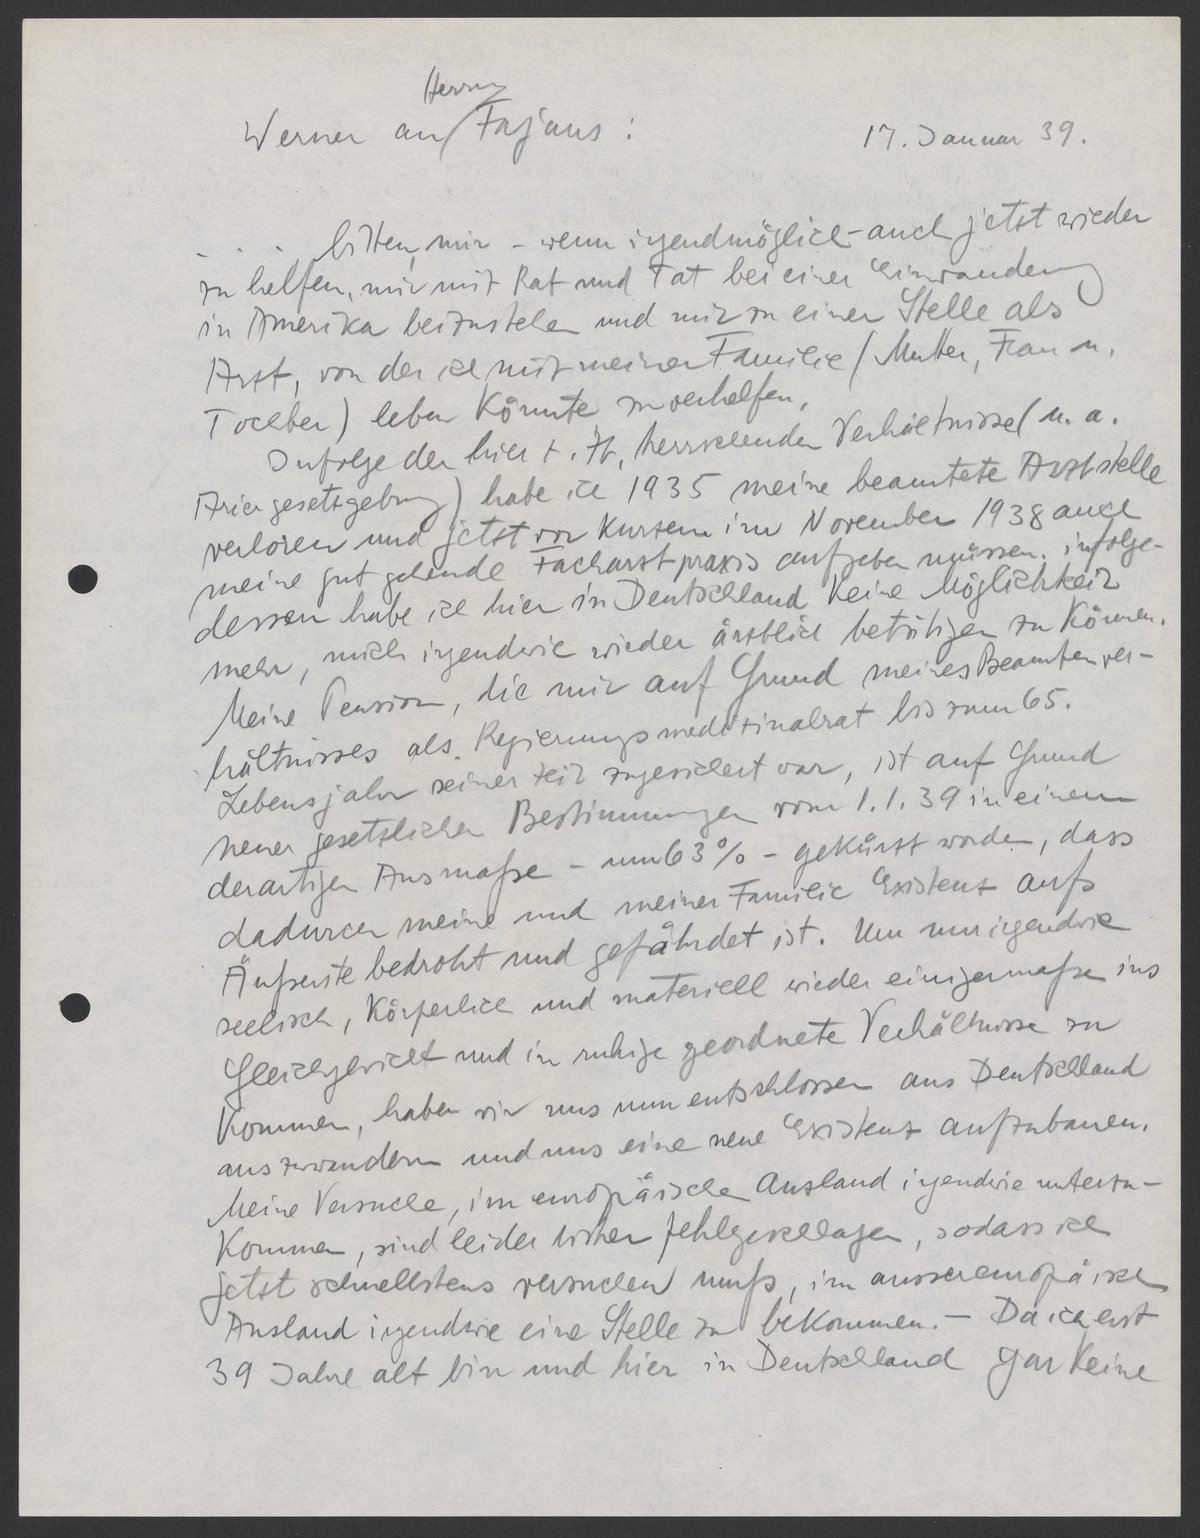 Herrn
Werner an Fajans : 17. Januar 39.
. . . bitten, mir - wenn irgendmöglich - auch jetzt wieder
zu helfen, mir mit Rat und Tat bei einer Einwanderung
in Amerika beizustehen und mir zu einer Stelle als
Arzt, von der ich mit meiner Familie (Mutter, Frau u.
Tochter) leben könnte zu verhelfen.
Infolge der hier z. Zt. herrschenden Verhältnisse (u. a.
Ariergesetzgebung) habe ich 1935 meine beamtete Arztstelle
verloren und jetzt vor kurzem im November 1938 auch
meine gut gehende Facharztpraxis aufgeben müssen. infolge-
dessen habe ich hier in Deutschland keine Möglichkeit
mehr, mich irgendwie wieder ärztlich betätigen zu können.
Meine Pension, die mir auf Grund meines Beamtenver-
hältnisses als Regierungsmedizinalrat bis zum 65.
Lebensjahr seiner Zeit zugesichert war, ist auf Grund
neuer gesetzlicher Bestimmungen vom 1.1.39 in einem
derartigen Ausmaße - um 63% - gekürzt worden, dass
dadurch meine und meiner Familie Existenz aufs
Äußerste bedroht und gefährdet ist. Um nun irgendwie
seelisch, körperlich und materiell wieder einigermaße ins
Gleichgewicht und in ruhige geordnete Verhältnisse zu
kommen, haben wir uns nun entschlossen aus Deutschland
auszuwandern und uns eine neue Existenz aufzubauen.
Meine Versuche, im europäischen Ausland irgendwie unterzu-
kommen, sind leider bisher fehlgeschlagen, sodass ich
jetzt schnellstens versuchen muß, im aussereuropäischen
Ausland irgendwie eine Stelle zu bekommen. - Da ich erst
39 Jahre alt bin und hier in Deutschland gar keine